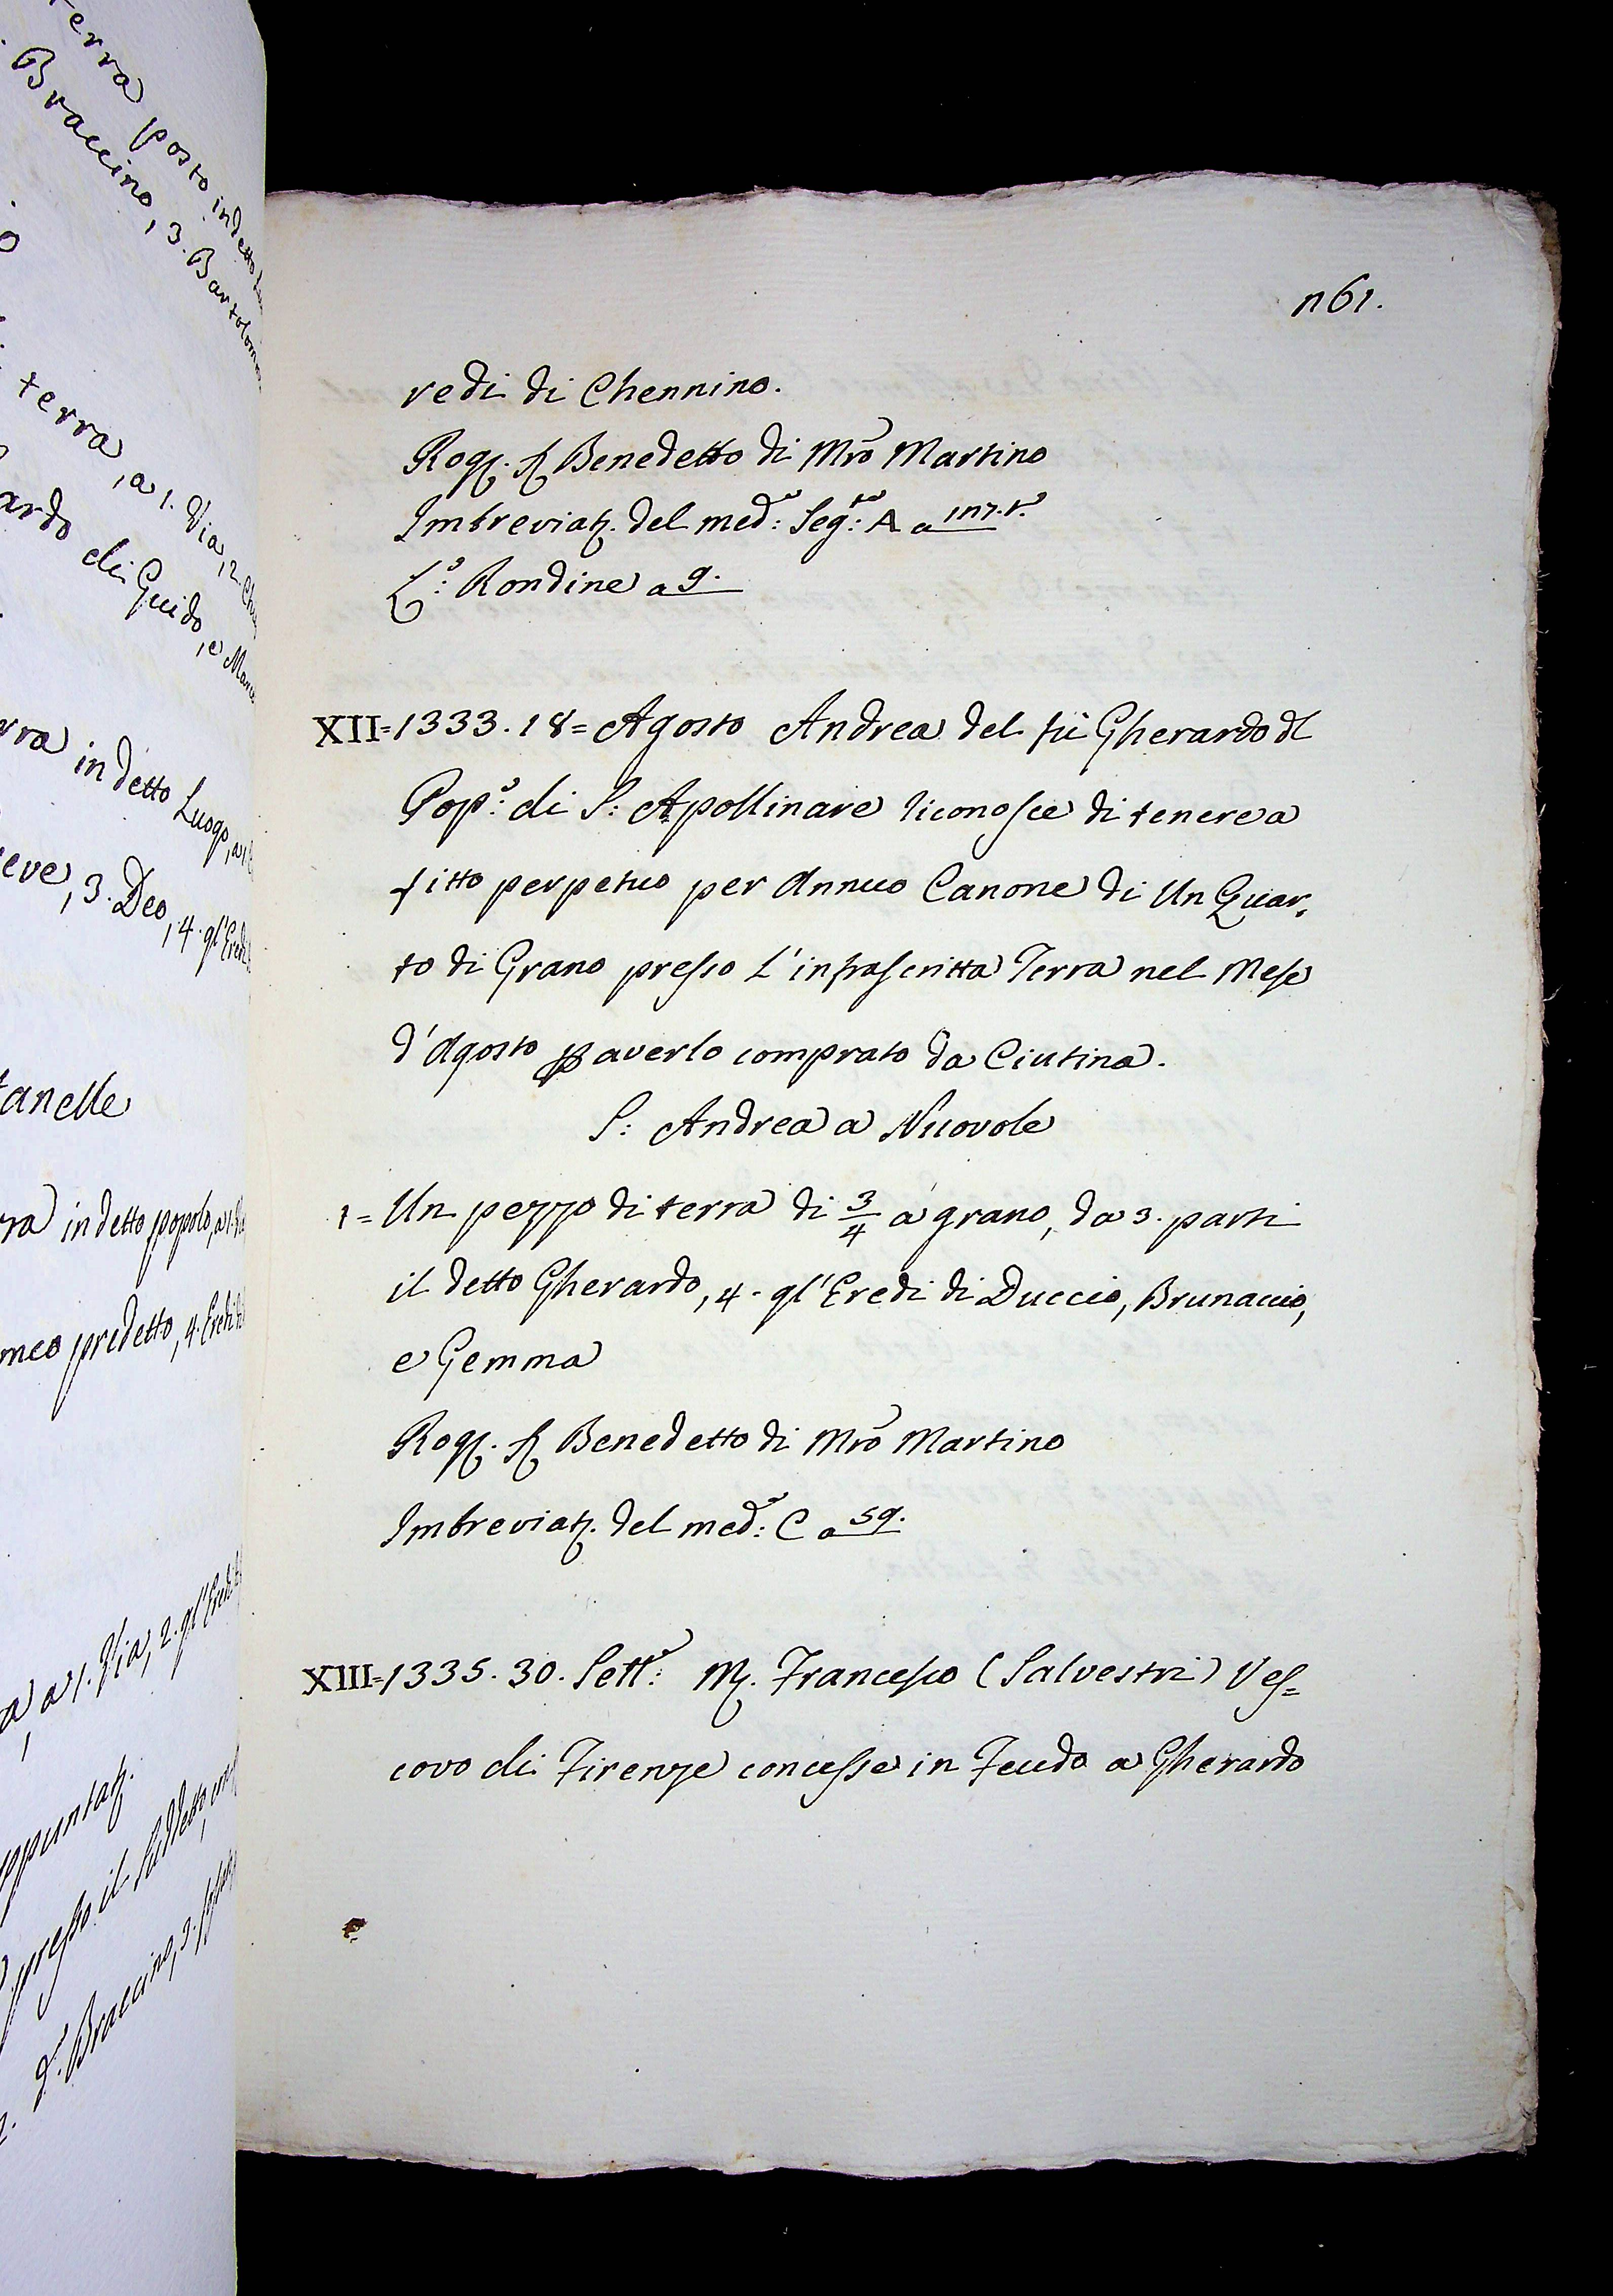 terra posto in detto
Braccino, 3. Bartolomeo
terra, a 1. Via, 2.
ardo di Guido, e
rra in detto Luogo, a 1.
eve, 3. Deo, 4. gl'Eredi
tanelle
rra in detto popolo, a 1.
meo predetto, 4. Eredi
a, a 1. Via, 2. gl'Eredi
presso il Suddetto,
Braccino, 3.
n61.
redi di Chennino.
Rog. f. Benedetto di Mrõ Martino
Imbreviaz. del med.º: Seg.to: A a 117.t.º
L.º: Rondine a 9.
XII=1333.18=Agosto Andrea del fù Gherardo dl
Pop.º: di S: Apollinare riconosce di tenere a
fitto perpetuo per Annuo Canone di Un Quar=
to di Grano presso L'infrascritta Terra nel Mese
d'Agosto p averlo comprato da Ciutina.
S: Andrea a Nuovole
1= Un pezzo di terra di 3/4 a grano, da 3. parti
il detto Gherardo, 4. gl'Eredi di Duccio, Brunaccio,
e Gemma
Rog. f. Benedetto di Mrõ Martino
Imbreviaz. del med.º: C a 59.
XIII=1335. 30. Sett.e: M. Francesco (Salvestri) Ves=
covo di Firenze concesse in Feudo a Gherardo